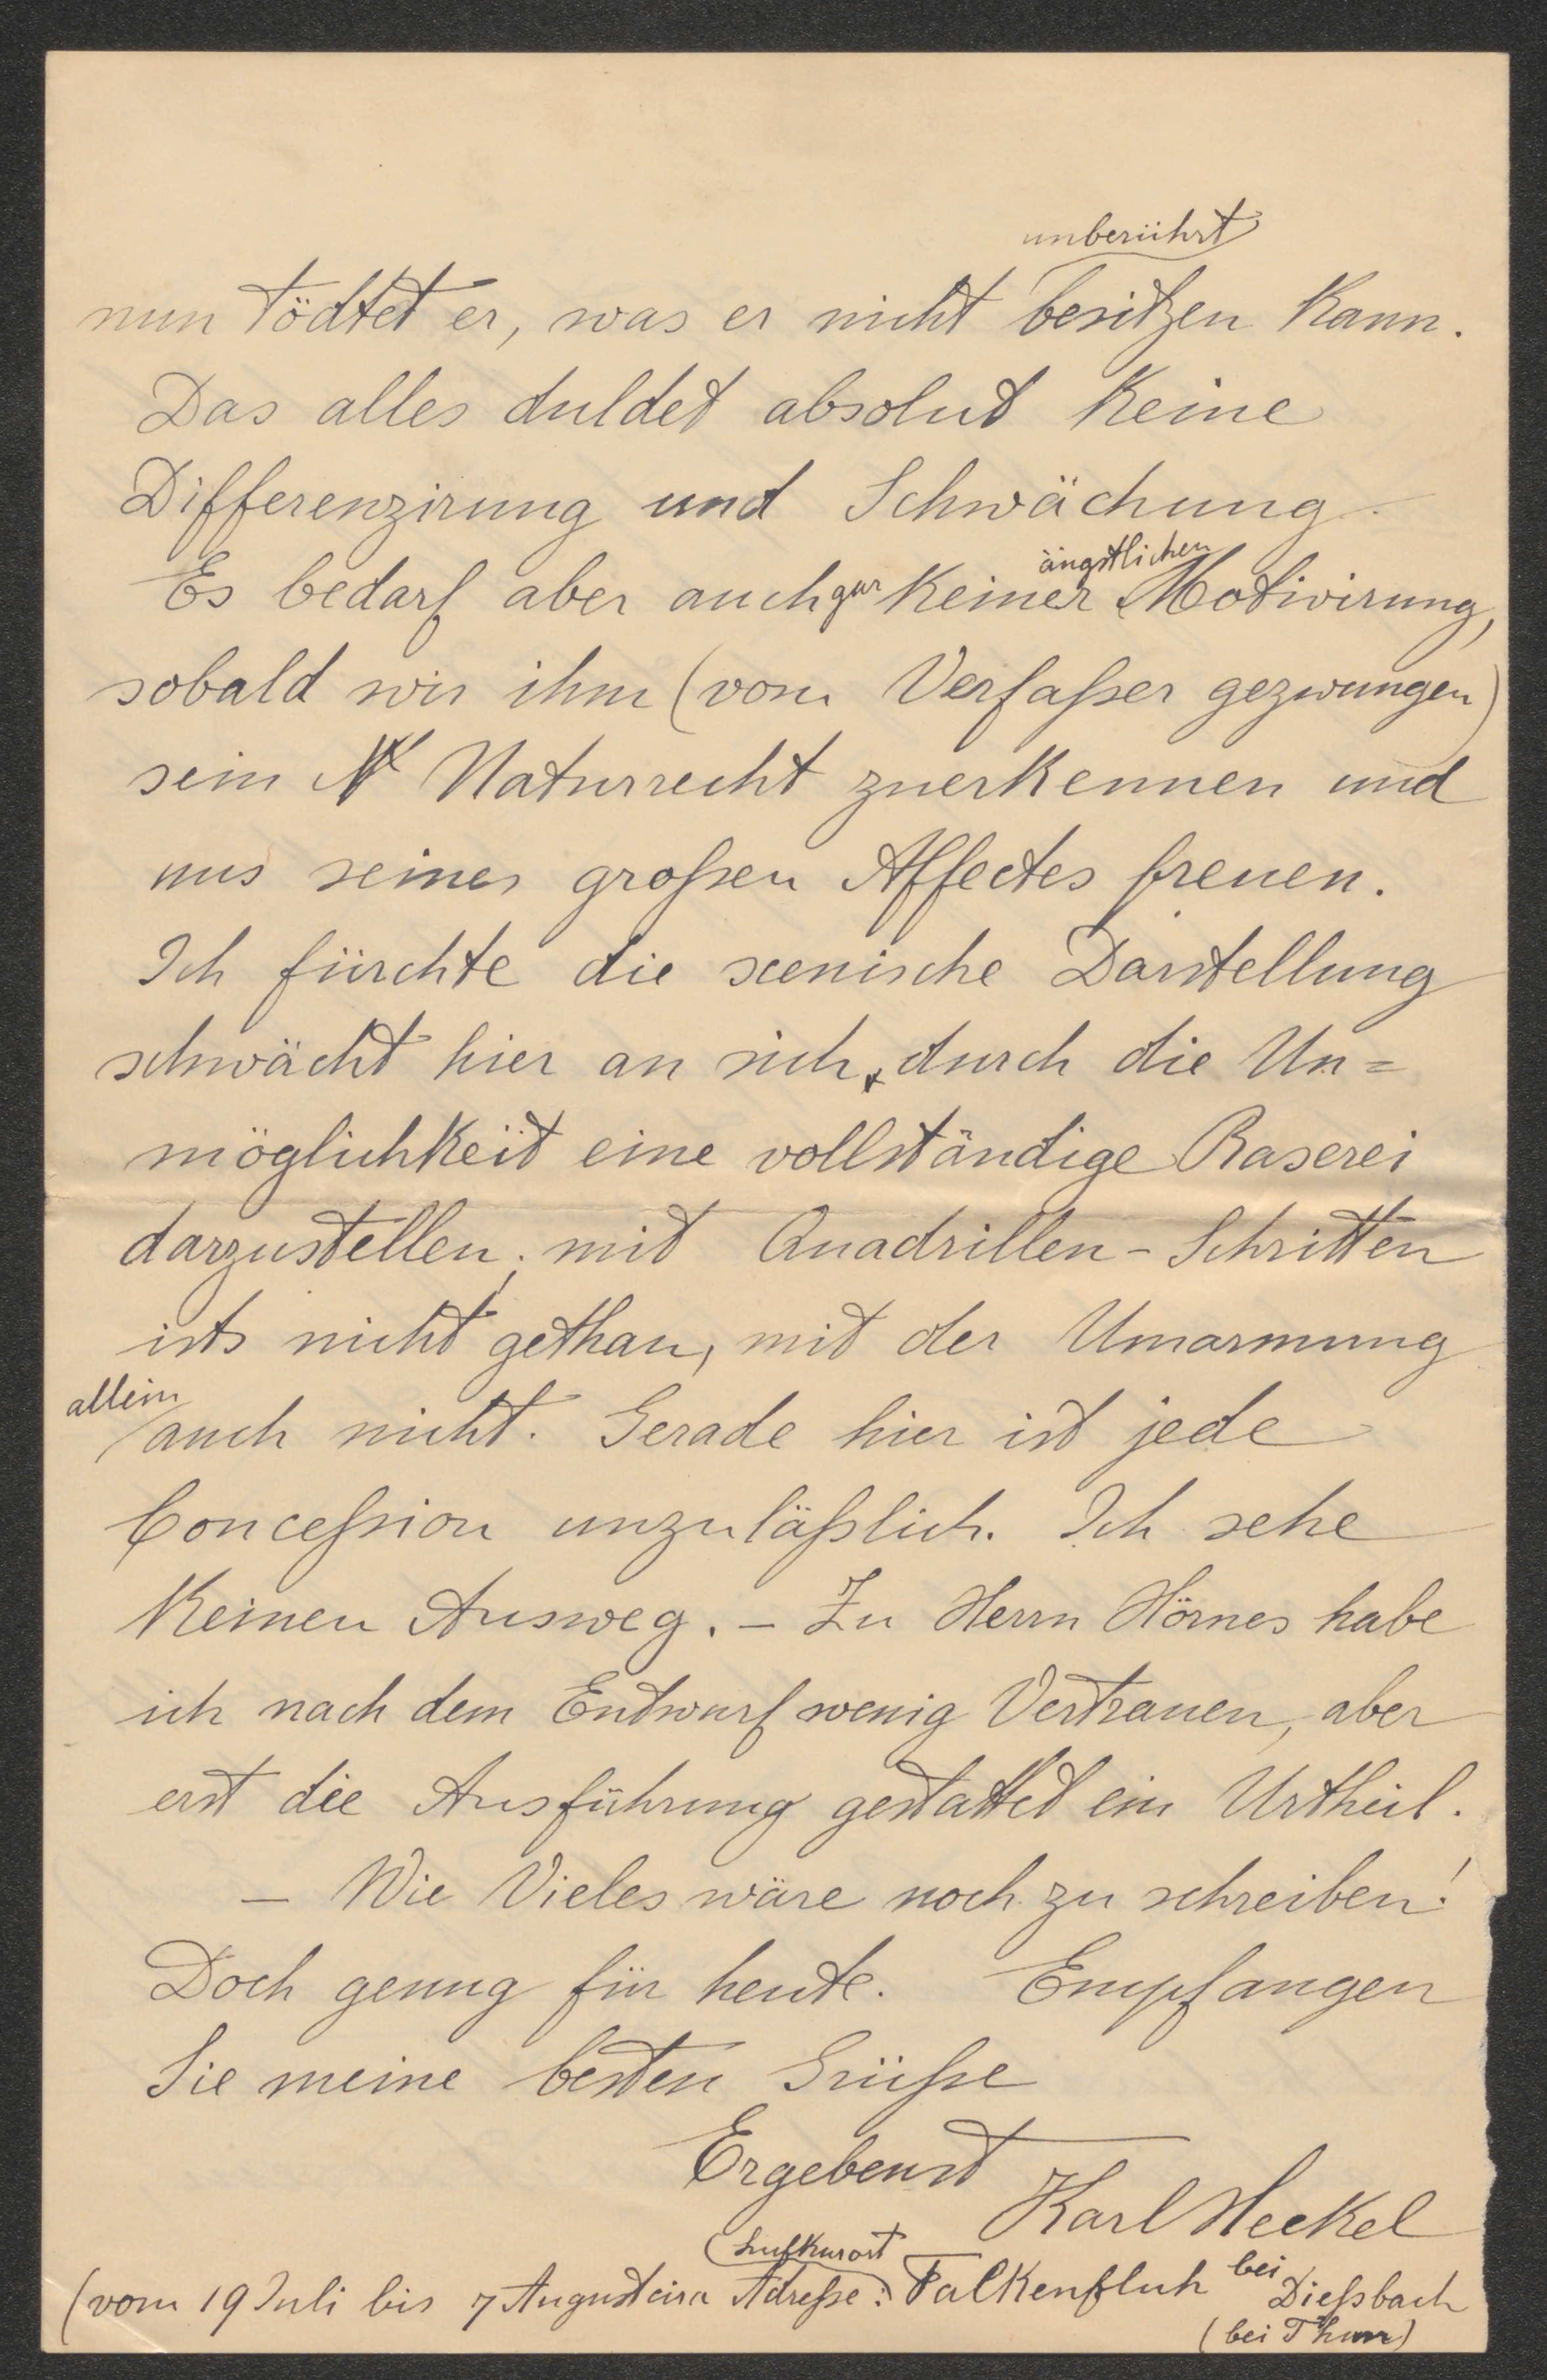 unberührt
nun tödtet er, was er nicht besitzen kann.
Das alles duldet absolut keine
Differenzirung und Schwächung.
ängstlichen
Es bedarf aber auch gar keiner Motivirung,
sobald wir ihm (vom Verfaßer gezwungen)
sein N Naturrecht zuerkennen und
uns seines großen Affectes freuen.
Ich fürchte die scenische Darstellung
schwächt hier an sich, durch die Un=
möglichkeit eine vollständige Raserei
darzustellen; mit Quadrillen-Schritten
ists nicht gethan, mit der Umarmung
allein
auch nicht. Gerade hier ist jede
Conceßion unzuläßlich. Ich sehe
keinen Ausweg. – Zu Herrn Hörnes habe
ich nach dem Entwurf wenig Vertrauen, aber
erst die Ausführung gestattet ein Urtheil.
– Wie Vieles wäre noch zu schreiben!
Doch genug für heute. Empfangen
Sie meine besten Grüße
Ergebenst
Karl Heckel
(Luftkurort
(vom 19 Juli bis 7 August circa Adreße: Falkenfluh bei Dießbach
(bei Thun)